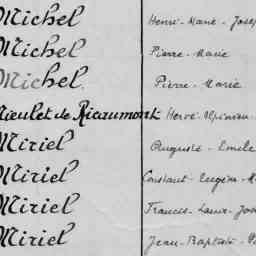 Michel Henri-Marie-Josep
Michel Pierre-Marie
Michel Pierre-Marie
Mieulet de Ricaumont Hervé-Alpinien
Miriel Auguste-Emile
Miriel Constant-Eugène-M
Miriel Francis-Louis-Jos
Miriel Jean-Baptiste-P